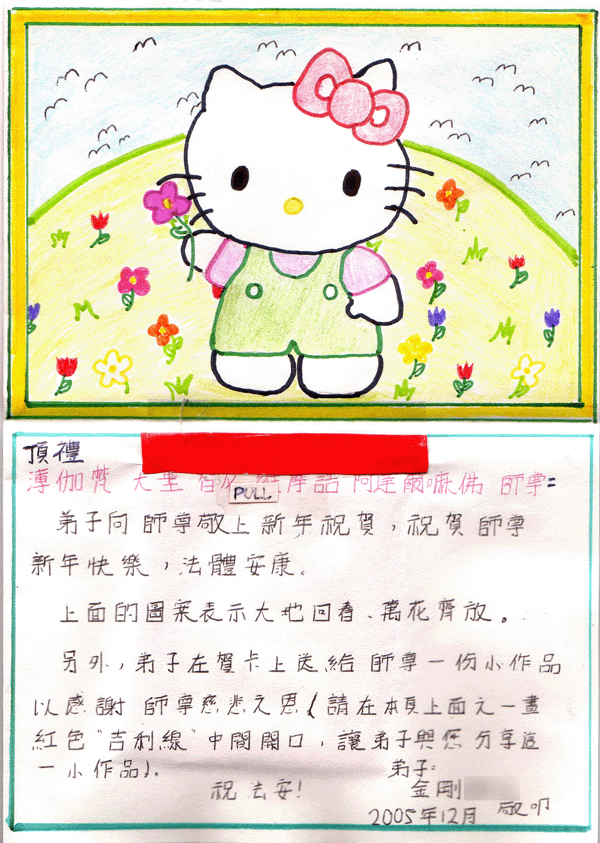 頂禮
薄伽梵 大聖 維摩詰 阿達爾嘛佛 師尊:
PULL
弟子向 師尊敬上新年祝賀，祝賀 師尊
新年快樂，法體安康。
上面的圖案表示大地回春、萬花齊放。
另外，弟子在賀卡上送給 師尊一份小作品
以感謝 師尊慈悲之恩(請在本頁上面之一畫
紅色"吉利線"中間開口，讓弟子與您分享這
一小作品)。
弟子:
祝 法安!
金剛
2005年12月 敬叩